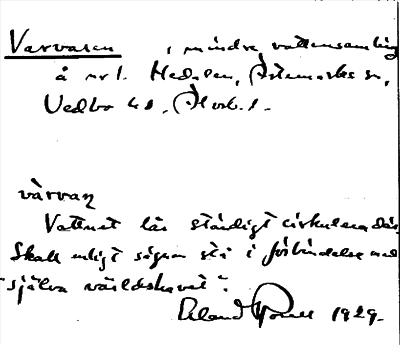 Varvasen , mindre vattensamling
å nr 1. Hedalen, Ärtemarks sn,
Vedbo hd, Älvsb. l.
vàrvaŋ
Vattnet lär ständigt cirkulera där.
Skall enligt sägnen stå i förbindelse med
"själva världshavet".
Erland 1929.